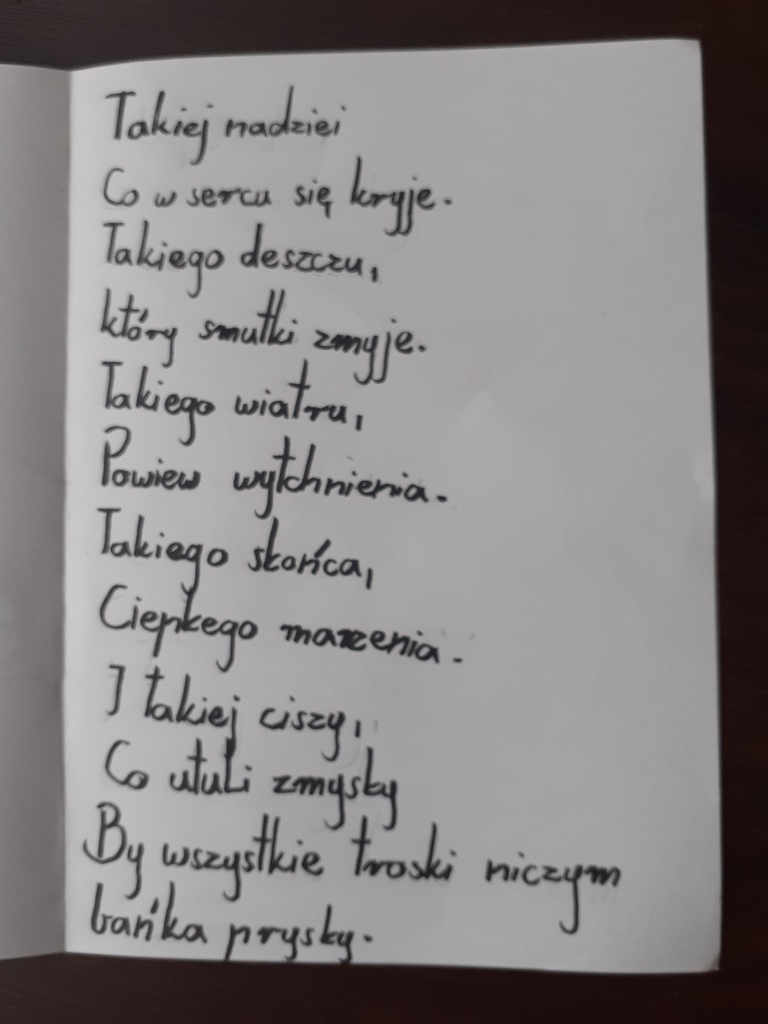 Takiej nadziei
Co w sercu się kryje.
Takiego deszczu,
który smutki zmyje.
Takiego wiatru,
Powiew wytchnienia.
Takiego słońca,
Ciepłego marzenia.
I takiej ciszy,
Co utuli zmysły
By wszystkie troski niczym
bańka prysły.